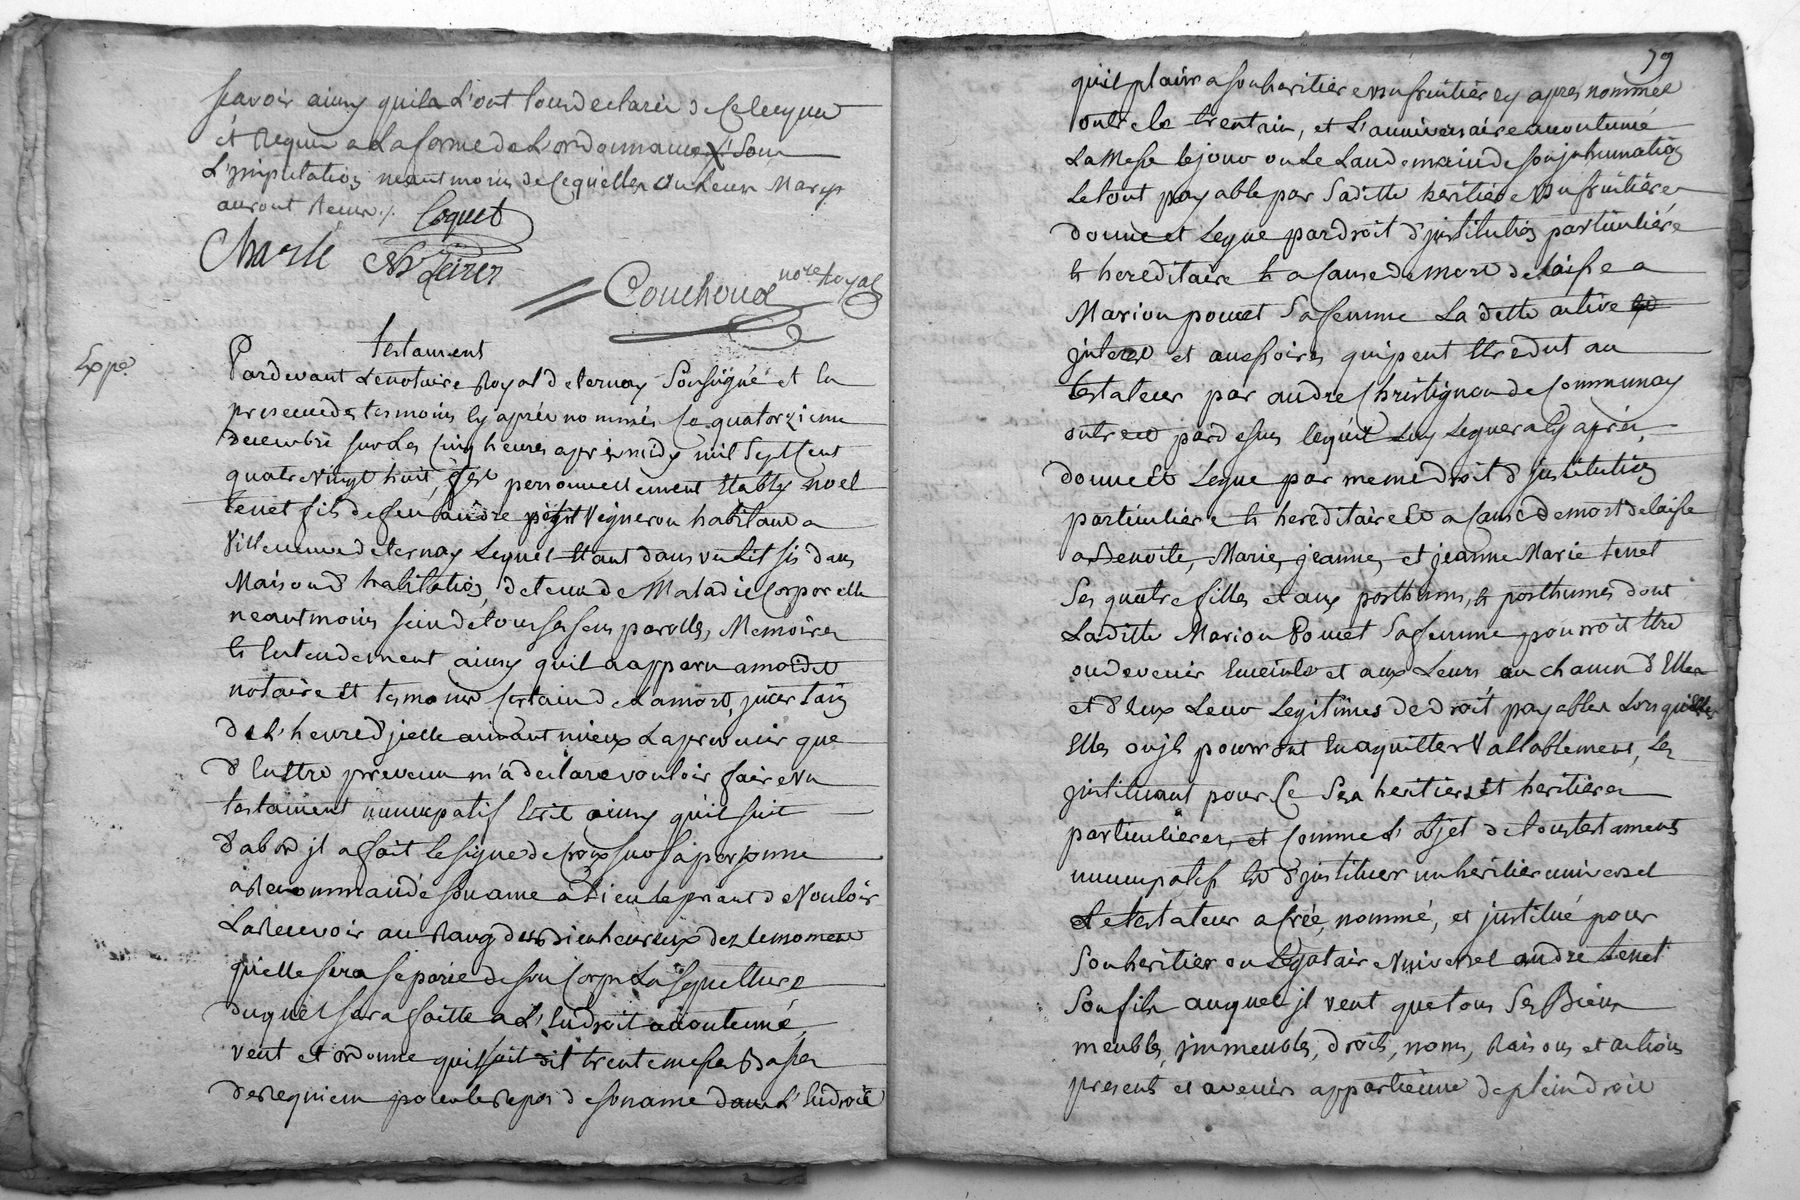 scavoir ainsy quils l'ont tous declaré de ce enquis
et Requis a La forme de L'ordonnance X sous
L'imputation neantmoins de ce qu'elles ou Leurs Marys
auront Receu ./. Coquet
Charle
Couchoud no.re Royal
testament
Exp.é
Pardevant Le notaire Royal de ternay Soussigné et en
presence des tesmoins Cy aprés nommés Ce quatorzieme
decembre sur Les Cinq heures aprés midy mil Sept Cent
quatre Vingt huit, fut personnellement Etably noel
tenet fils de feu andre Vigneron habitant a
Villeneuve de ternay Lequel Etant dans un Lit sis dans
Maison d'habitation, detenu de Maladie Corporelle
neantmoins sain de tous ses sens parolles, Memoires
et Entendement ainsy quil a apparu a moidit
notaire et temoins Certain de La mort, jncertain
de L'heure d'jcelle aimant mieux La prevenir que
d'En Etre prevenu m'a declare vouloir faire un
testament nuncupatif Ecrit ainsy qu'il suit
d'abord jl a fait le signe de Croix sur sa personne
a Recommandé son ame a Dieu Le priant de Vouloir
La Recevoir au Rang des Bienheureux dez le moment
qu'elle sera separée de son Corps La Sepulture
duquel sera faitte a L'Endroit accoutumé,
veut et ordonne quil soit dit trente messes Basses
de Requiem pour le Repos de son ame dans L'Endroit
79
qu'il plaira a son heritiere usufruitiere cy apres nommée
outre le trentain, et L'anniversaire accoutumé
La Messe le jour ou Le Landemain de son jnhumation
Le tout payable par Saditte heritiere Usufruitiere
donne et Legue par droit d'jnstitution particuliére
et hereditaire et a Cause de mort delaisse a
Marion pouet Sa femme La dette active
jnterets et accessoires qui peut Etre dut au
testateur par andre Christignon de Communay
outre et par dessus Ce qu'il Luy Leguera Cy aprés,
donne Et Legue par meme droit d'jnstitution
particuliere et hereditaire Et a Cause de mort delaisse
a Benoite, Marie, jeanne, et jeanne Marie tenet
Ses quatre filles et aux posthums, et posthumes dont
Laditte Marion Pouet Sa femme pourroit Etre
ou devenir Enceinte et aux Leurs a Chacun d'Elles
et d'Eux Leur Legitimes de droit payables Lorsqu'elles
Elles ou jls pourront En aquitter Vallablement, Les
jnstituant pour Ce Ses heritiers Et heritieres
particulieres, et Comme L'objet de tous testaments
nuncupatifs Est d'jnstituer un heritier universel
Le testateur a Créé, nommé, et jnstitué pour
Son heritier ou Legataire Universel andre tenet
Son fils auquel jl veut que tous Ses Biens
meubles, jmmeubles, droits, noms, Raisons et actions
presents et avenirs appartienne de plein droit